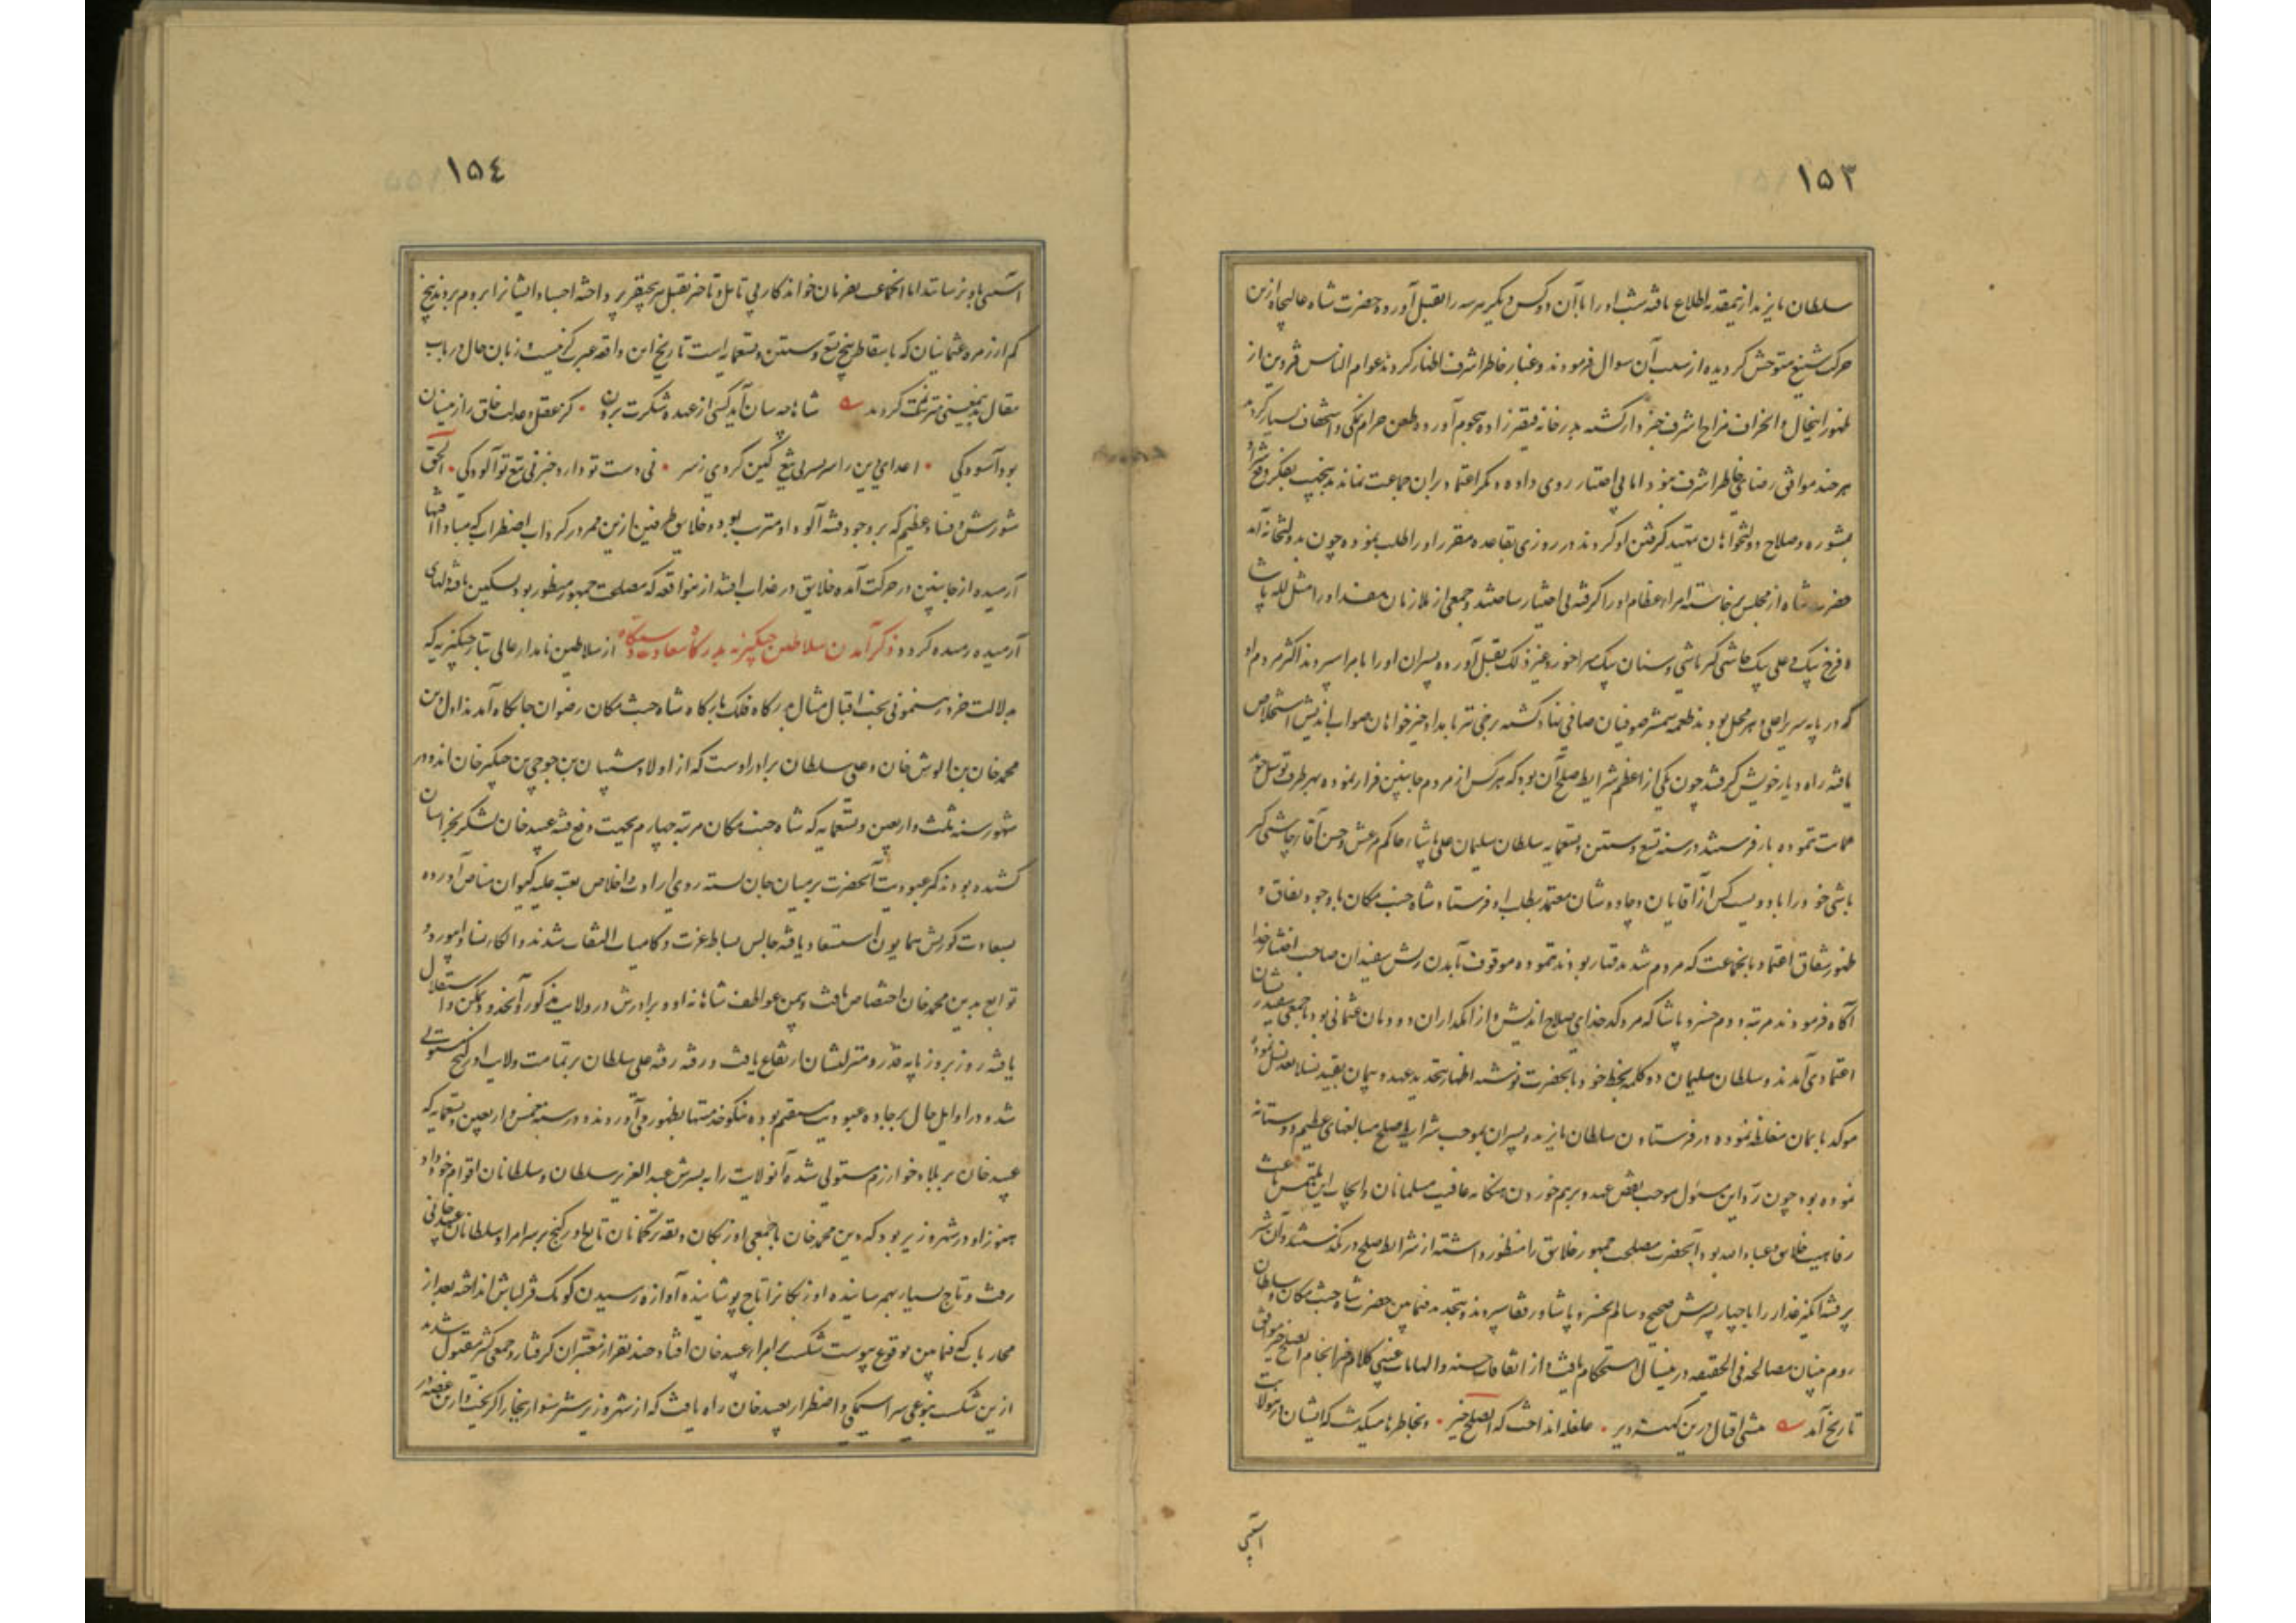 ١٥٣
سلطان بایزید ازینمقدمه اطلاع یافته شب او را با آن دو کس دیگر هر سه را بقتل آورد و حضرت شاه عالیجاه ازین
حرکت شنیع متوحش کردیده از سبب آن سوال فرمودند و غبار خاطر اشرف اظهار کردند عوام الناس قزوین از
ظهور اینحال و انحراف مزاج اشرف خبردار کشته بدر خانه قیصرزاده هجوم آورده و طعن حرام نمکی و استخفاف بسیار کردند
هر چند موافق رضای خاطر اشرف نبود اما بی اختیار روی داده دیکر اعتماد بران جماعت نماند بدینجهت بفکر دفع شر او
بمشوره و صلاح دولتخواهان مقید کرفتن او کردند در روزی بقاعده مقرر او را طلب نموده چون بدولتخانه آمد
حضرت شاه از مجلس برخاسته امراء عظام او را کرفته بی اختیار ساختند و جمعی از ملازمان مفسد او را مثل لله پاشا
و فرخ بیک و علی بیک چاشنی کیر باشی و سنان بیک میراخور و غیر ذلک بقتل آورده پسران او را بامرا سپردند اکثر مردم او
که در پایه سریر اعلی و هر محل بودند طعمه شمشیر صوفیان صافی نهاد کشته برخی تتر بامداد خیرخواهان صواب اندیش استخلاص
یافته راه دیار خویش کرفتند چون یکی از اعظم شرایط صلح آن بود که هر کس از مردم جانبین فرار نموده بهر طرف توسل جوید
حمایت ننموده باز فرستند در سنه تسع و ستین و تسعمایه سلطان سلیمان علی پاشاء حاکم مرعش و حسن آقاء چاشنی کیر
باشی خود را با دویست کس از آقایان و چاوشان معتمد بطلب او فرستاد شاه جنت مکان با وجود نفاق و
ظهور شقاق اعتماد بانجماعت که مردم شدید قتار بودند ننموده موقوف بآمدن ریش سفیدان صاحب اختیار خدا
آکاه فرمودند مرتبه دوم خسرو پاشا که مرد کدخدای صلاح اندیش و از نمکداران دودمان عثمانی بود با جمعی سفید ریشان
اعتمادی آمدند و سلطان سلیمان دو کلمه بخط خود بآنحضرت نوشته اظهار تجدید عهد و پیمان بقید نسلا بعد نسل نموده
موکد بایمان مغلظه نموده در فرستادن سلطان بایزید و پسران بموجب شرایط صلح مبالغهای عظیم دوستانه
نموده بود چون رد این مسئول موجب نقض عهد و برهم خوردن هنکامه عافیت مسلمانان و ایجاب این ملتمس باعث
رفاهیت خلایق و عباد الله بود آنحضرت مصلحت جمهور خلایق را منظور داشته از شرایط صلح در نکذشتند و آن شر
پر فتنه انکیز غدار را با چهار پسرش صحیح و سالم بخسرو پاشا و رفقا سپردند و بتجدید فیمابین حضرت شاه جنت مکان و سلطان
روم بنیان مصالحه فی الحقیقه درینسال استحکام یافت و از اتفاقات حسنه و الهامات غیبی کلام خیر انجام الصلح خیر موافق
تاریخ آمد منشی اقبال درین کهنه دیر ۰ غلغله انداخت که الصلح خیر ۰ و بخاطرها میکذشت که ایشان از ینولایت
آسیبی
١٥٤
آسیبی باو نرسانند اما انجماعت بفرمان خواندکار بی تامل و تاخیر بقتل هر پنج نفر پرداخته اجساد ایشانرا بروم بردند پنج
کم از زمره عثمانیان که باسقاط پنج تسع و ستین و تسعمایه است تاریخ این واقعه عبرت کزینست و زبان حال در باب
مقال بدینمعنی مترنم کردید شاها چه سان آید کسی از عهده شکرت برون ۰ کز عقل و عدلت خلق را از میان
بود آسودکی ۰ اعدای دین را سر بسر بی تیغ کین کردی ز سر ۰ نی دست تو دارد خبر نی تیغ تو آلودکی ۰ الحق
شورش و فساد عظیم که بر وجود فتنه آلود او مترتب بود و خلایق طرفین ازین ممر در کرداب اضطراب که مبادا فتنها
آرمیده از جانبین در حرکت آمده خلایق در عذاب افتند از ینواقعه که مصلحت جمهور منظور بود تسکین یافته دلهای
آرمیده رمیده کردد ذکر آمدن سلاطین چنکیزیه بدرکاه سعادت دستکاه از سلاطین نامدار عالی تبار چنکیزیه که
بدلالت خرد و رهنمونی بخت اقبال مثال بدرکاه فلک بارکاه شاه جنت مکان رضوان جایکاه آمدند اول دین
محمد خان بن الوش خان و علی سلطان برادر اوست که از اولاد شیبان بن جوجی بن چنکیز خان اند و در
شهور سنه ثلث و اربعین و تسعمایه که شاه جنت مکان مرتبه چهارم بجهت دفع فتنه عبید خان لشکر بخراسان
کشیده بودند کمر عبودیت آنحضرت بر میان جان بسته روی ارادت و اخلاص بعتبه علیه کیوان مناص آورده
بسعادت کورنش همایون استسعاد یافته جالس بساط عزت و کامیاب التفات شدند و الکاء نسا و ابیورد و
توابع بدین محمد خان اختصاص یافت و بیمن عواطف شاهانه او و برادرش در ولایت مذکور آنحدود تمکن و استقلال
یافته روز بروز پایه قدر و منزلتشان ارتفاع یافت و رفته رفته علی سلطان بر تمامت ولایت اورکنج مستولی
شد و در اوایل حال بر جاده عبودیت مستقیم بوده نیکو خدمتیها بظهور می آوردند و در سنه خمس و اربعین و تسعمایه که
عبید خان بر بلاد خوارزم مستولی شده آنولایت را به پسرش عبد العزیز سلطان و سلطانان اقوام خود داد
هنوز او در شهر وزیر بود که دین محمد خان با جمعی اوزبکان و بقیه ترکمانان تابع اورکنج بر سر امرا و سلطانان عبید خانی
رفت و تاج بسیار بهم رسانیده اوزبکانرا تاج پوشانیده آوازه رسیدن کومک قزلباش انداخته بعد از
محارباتی که فیمابین بوقوع پیوست شکست بر امراء عبید خان افتاد چند نفر از معتبران کرفتار و جمعی کثیر مقتول شدند
ازین شکست بنوعی سراسیمکی و اضطرار بعبید خان راه یافت که از شهر وزیر شتر سوار ببخارا کریخت و ازین غصه در